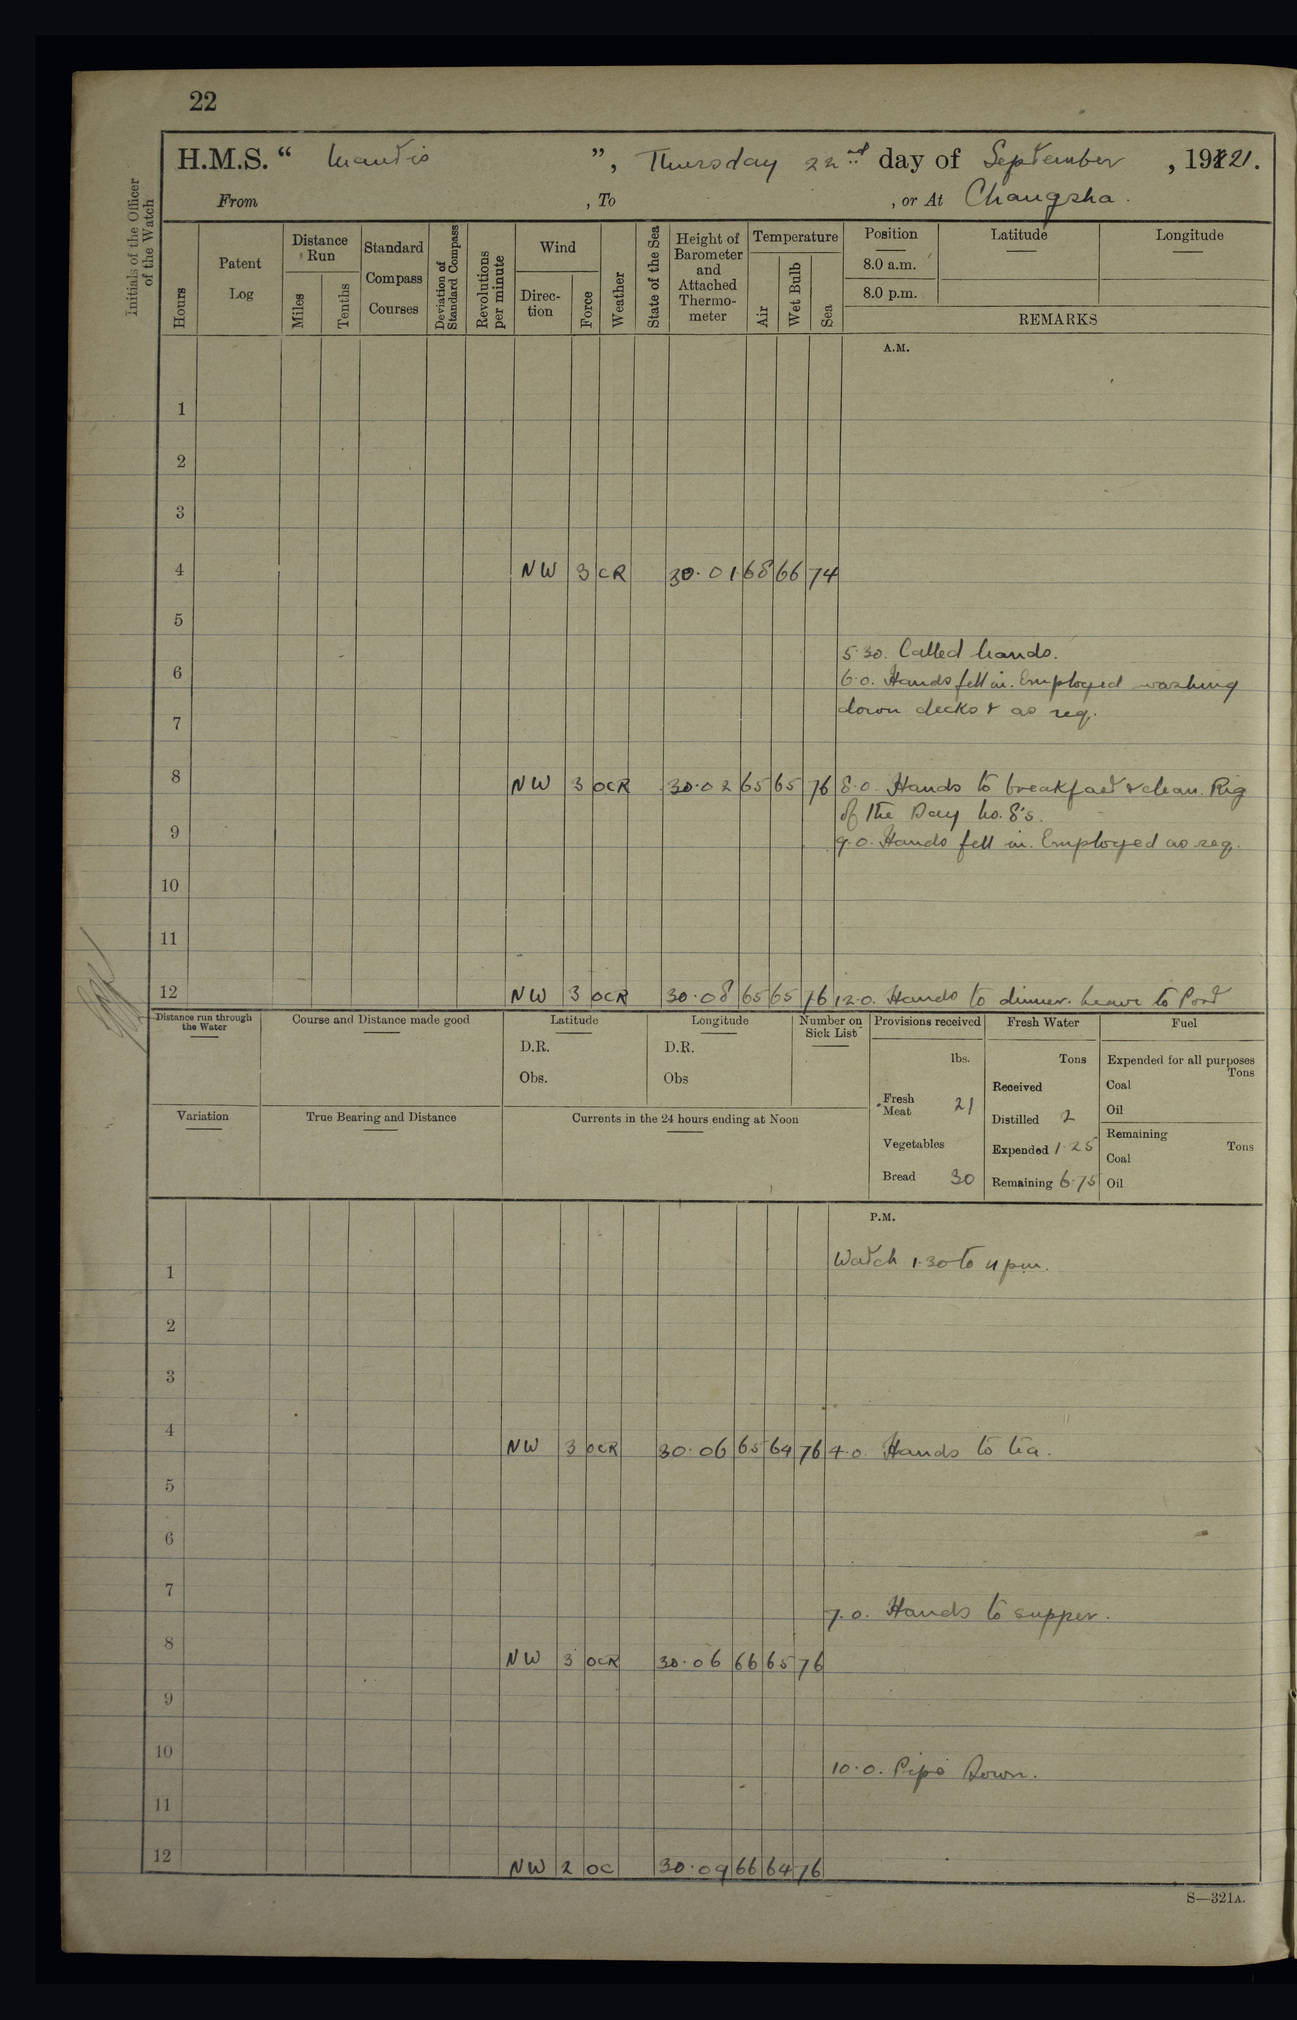 22
H.M.S. “ Mantis ”, Thursday 22nd day of September, 1921.
From , To , or At Changsha.
Initials of the Officer of the Watch
Hours
Patent Log
Distance Run
Miles
Tenths
Standard Compass Courses
Deviation of Standard Compass
Revolutions per minute
Wind
Direction
Force
Weather
State of the Sea
Height of Barometer and Attached Thermometer
Temperature
Air
Wet Bulb
Sea
Position
8.0 a.m.
8.0 p.m.
Latitude
Longitude
REMARKS
A.M.
1
2
3
4 NW 3 CR 30.01 68 66 74
5
5.30. Called hands.
6 6.0. Hands fell in. Employed washing
down decks & as req.
7
8 NW 3 OCR 30.02 65 65 76 8.0. Hands to breakfast & clean. Rig
of the Day No. 8's.
9 9.0. Hands fell in. Employed as req.
10
11
12 NW 3 OCR 30.08 65 65 76 12.0. Hands to dinner. Leave to Port
Distance run through the Water
Course and Distance made good
Latitude
D.R.
Obs.
Longitude
D.R.
Obs
Number on Sick List
Provisions received
lbs.
Fresh Meat 21
Vegetables
Bread 30
Fresh Water
Tons
Received
Distilled 2
Expended 1.25
Remaining 6.75
Fuel
Expended for all purposes
Tons
Coal
Oil
Remaining
Tons
Coal
Oil
Variation
True Bearing and Distance
Currents in the 24 hours ending at Noon
P.M.
1 Watch 1.30 to 11 pm.
2
3
4 NW 3 OCR 30.06 65 64 76 4.0. Hands to tea.
5
6
7 7.0. Hands to supper.
8 NW 3 OCR 30.06 66 65 76
9
10 10.0. Pipe Down.
11
12 NW 2 OC 30.09 66 64 76
S—321A.